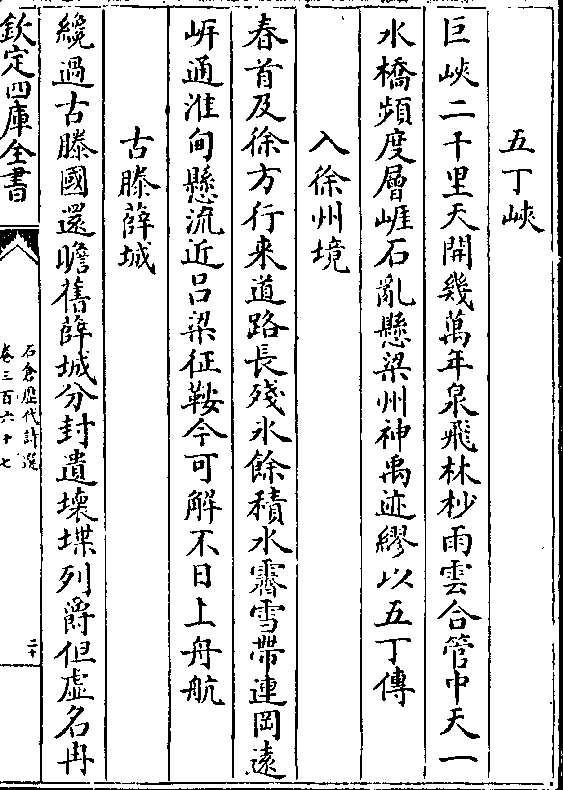 五丁峽
巨峽二千里天開幾萬年泉飛林杪雨雲合管中天一
水橋頻度層崕石亂懸梁州神禹迹繆以五丁傳
入徐州境
春首及徐方行来道路長殘氷餘積水霽雪帶連岡遠
岍通淮甸懸流近吕梁征鞍今可解不日上舟航
古滕薛城
纔過古滕國還瞻舊薛城分封遺壊堞列爵但虚名冉
欽定四庫全書
石倉歷代詩選
卷三百六十七
二十